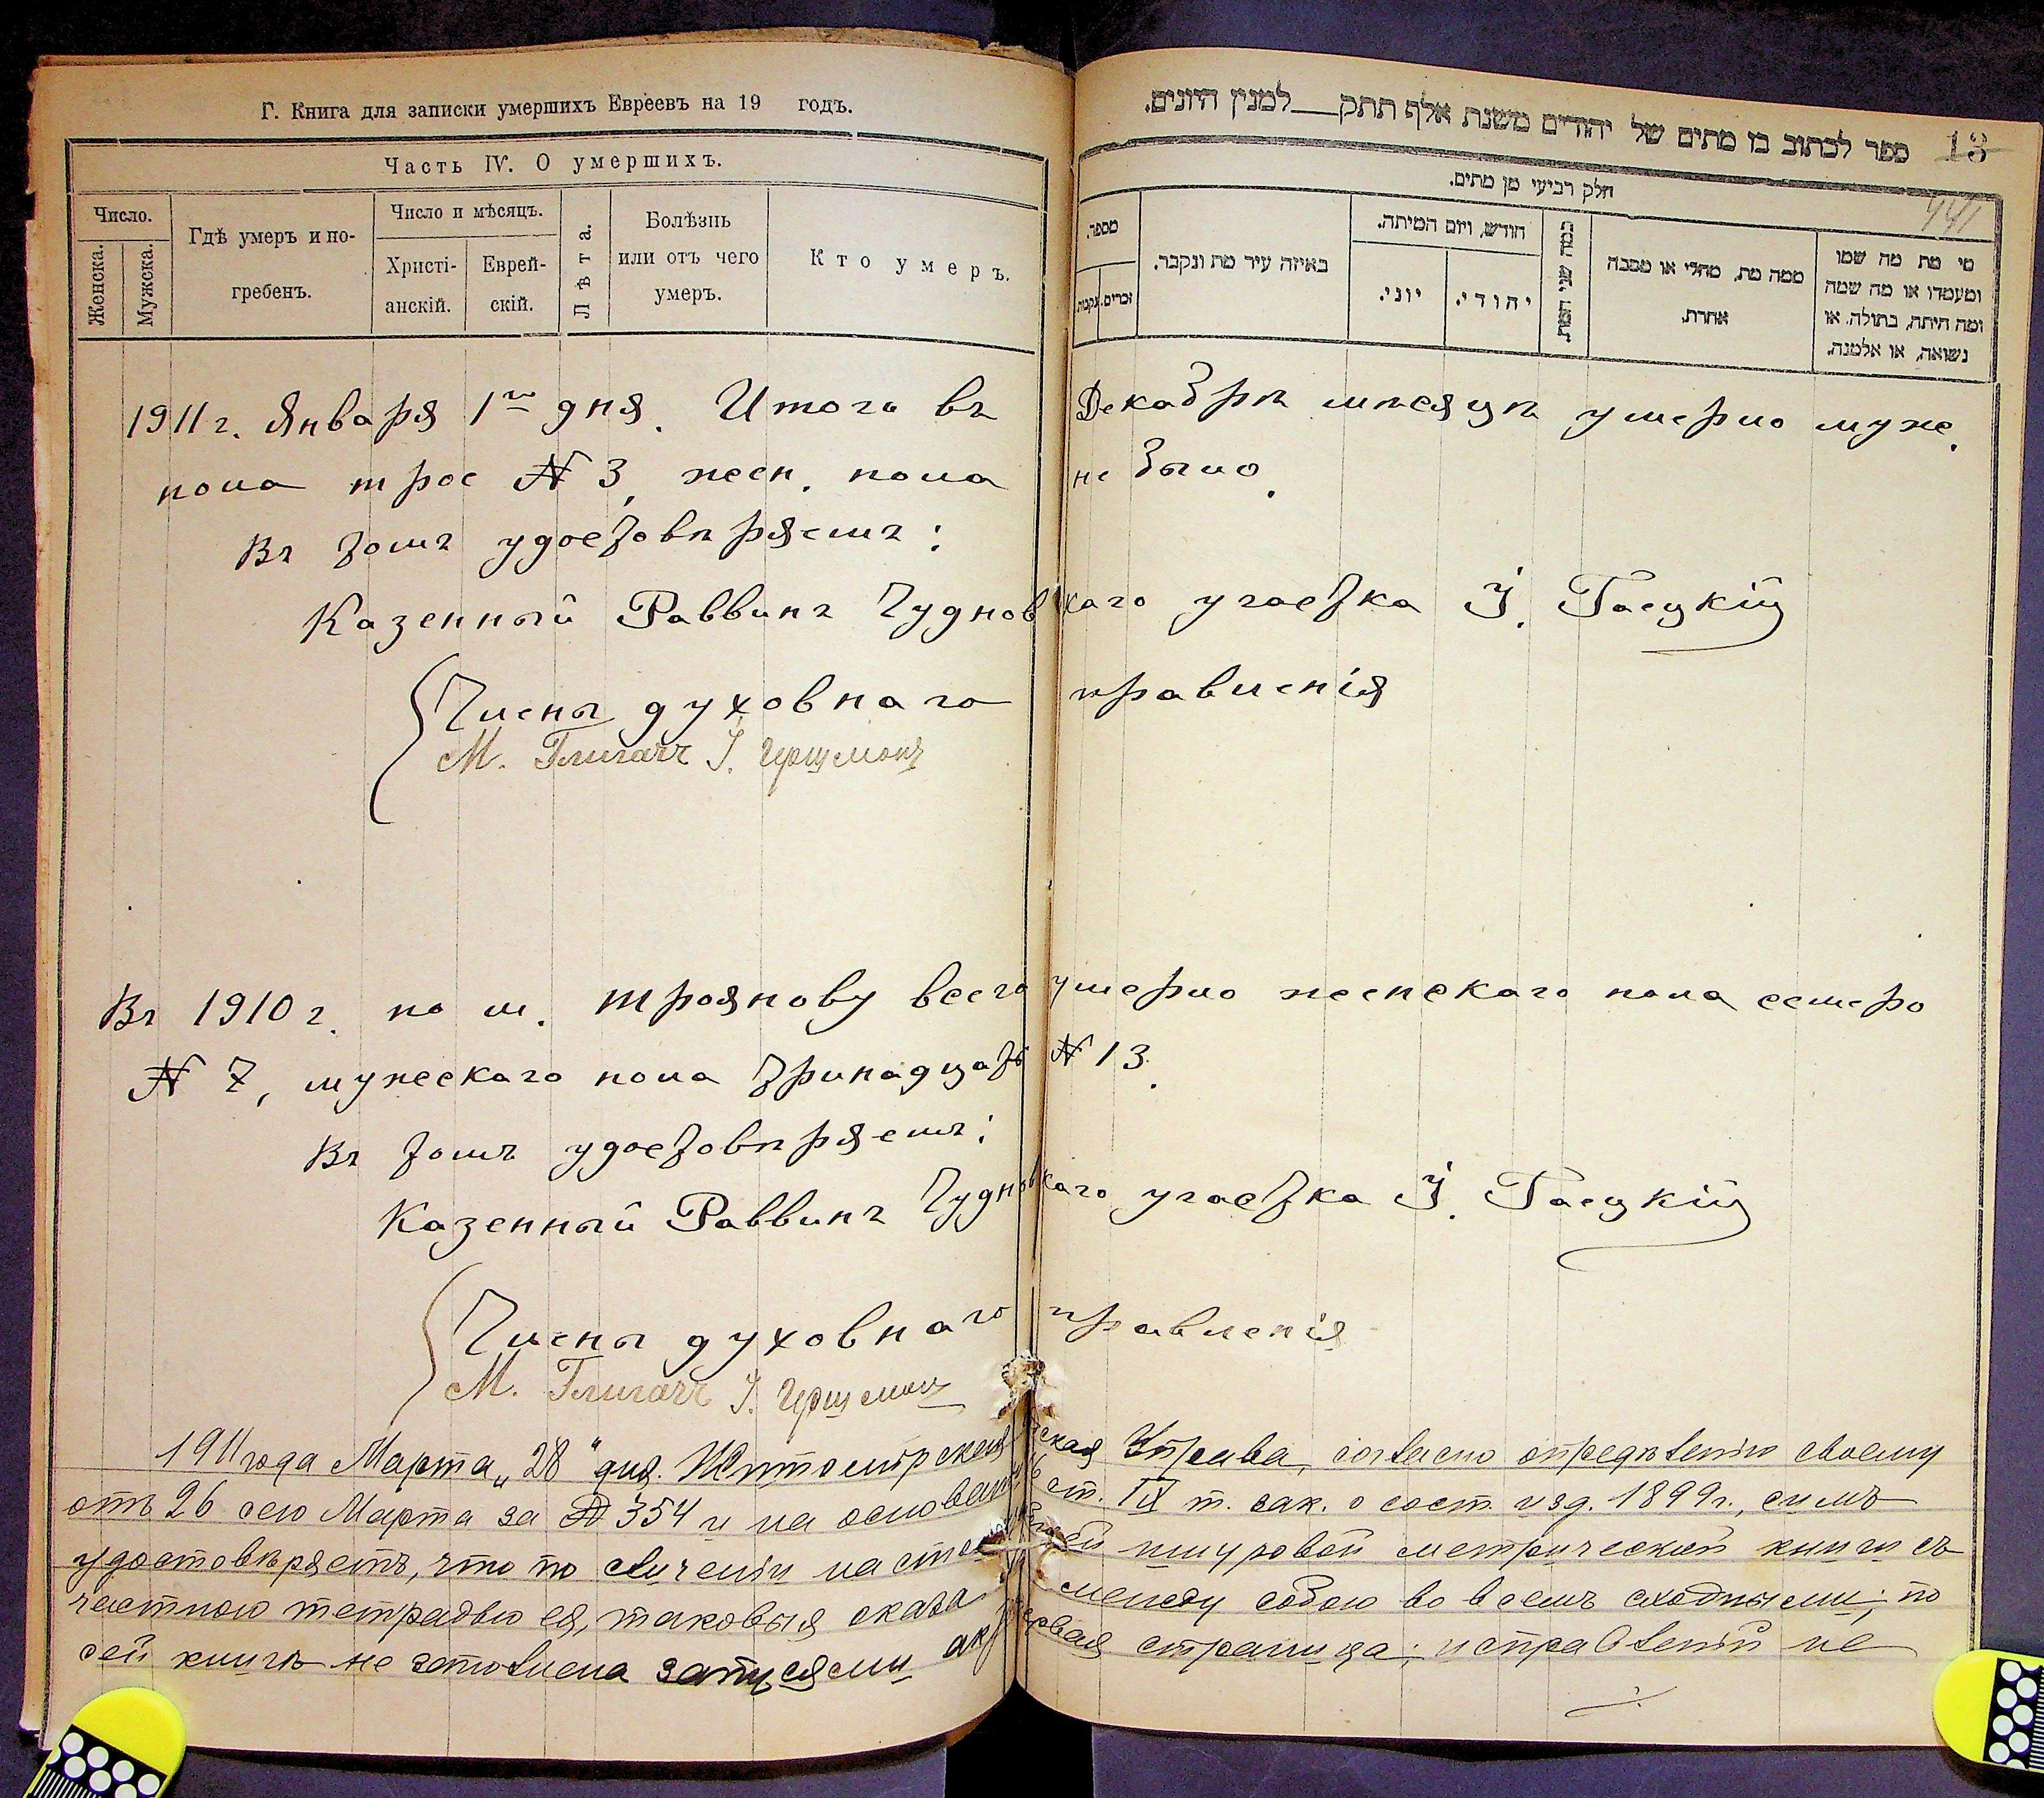 Г. Книга для записки умершихъ Евреевъ на 19 годъ.
Часть IV. О умершихъ.
Число.
Женска.
Мужска.
Гдѣ умеръ и по-
гребенъ.
Число и мѣсяцъ.
Христі-
анскій.
Еврей-
скій.
Лѣта.
Болѣзнь
или отъ чего
умеръ.
Кто умеръ.
ספר לכתוב בו מתים של יהודים משנת אלף תתק__למנין היונים.
13
441
חלק רביעי מן מתים.
מספר.
זכרים.
נקבות
באיזה עיר מת ונקבר.
חודש, ויום המיתה.
יוני.
יהודי.
כמה שני המת.
ממה מת, מחלי או מסבה
אחרת.
מי מת מה שמו
ומעמדו או מה שמה
ומה היתה, בתולה. או
נשואה, או אלמנה.
1911 г. Января 1го дня. Итого въ Декабрѣ мѣсяцѣ умерло муже.
пола трое № 3, жен. пола не было.
Въ томъ удостовѣряемъ:
Казенный Раввинъ Чудновскаго участка І. Гасцкій
Члены духовнаго правленія
М. Глигачъ І.
Въ 1910 г. по м. Троянову всего умерло женскаго пола семеро
№ 7, мужескаго пола тринадцать № 13.
Въ томъ удостовѣряемъ:
Казенный Раввинъ Чудновскаго участка І. Гасцкій
Члены духовнаго правленія
М. Глигачъ І.
1911 года Марта „28" дня. Житомірская Управа, согласно опредѣленію своему
отъ 26 сего Марта за № 354 и на основаніи ст. IX т. зак. о сост. изд. 1899 г., симъ
удостовѣряетъ, что по сличеніи настоящей шнуровой метрической книги съ
частною тетрадью ея, таковыя оказа между собою во всемъ сходными; по
сей книгѣ не заполнена записями первая страница; исправленій не